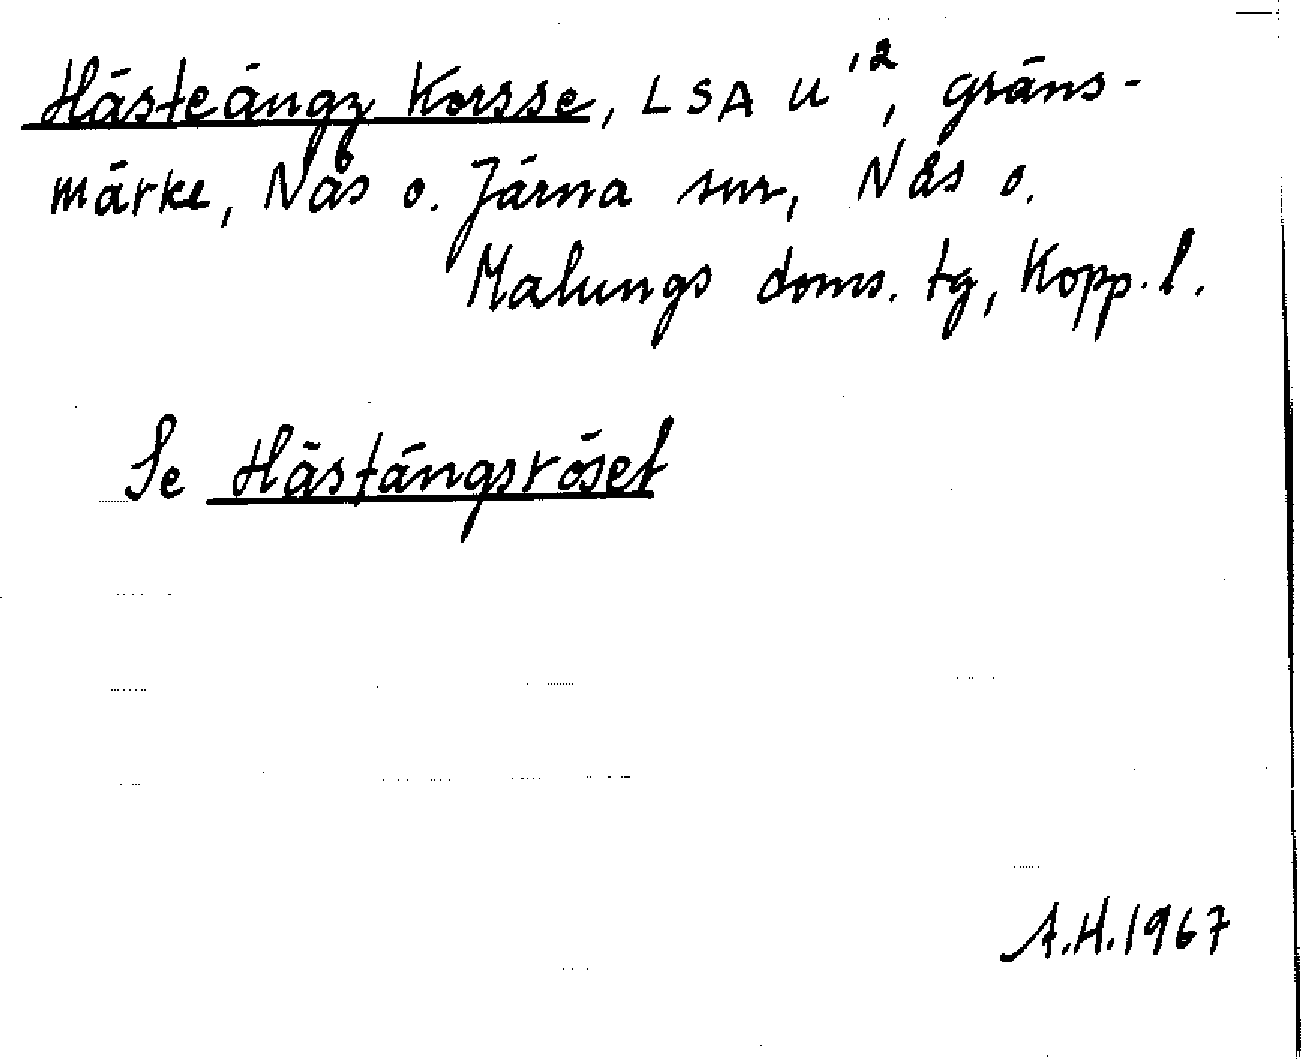 Hästeängz Korsse, LSA U'², gräns-
märke, Nås o. Järna snr, Nås o.
Malungs doms. tg, Kopp. l.
Se Hästängsröset
A.H. 1967